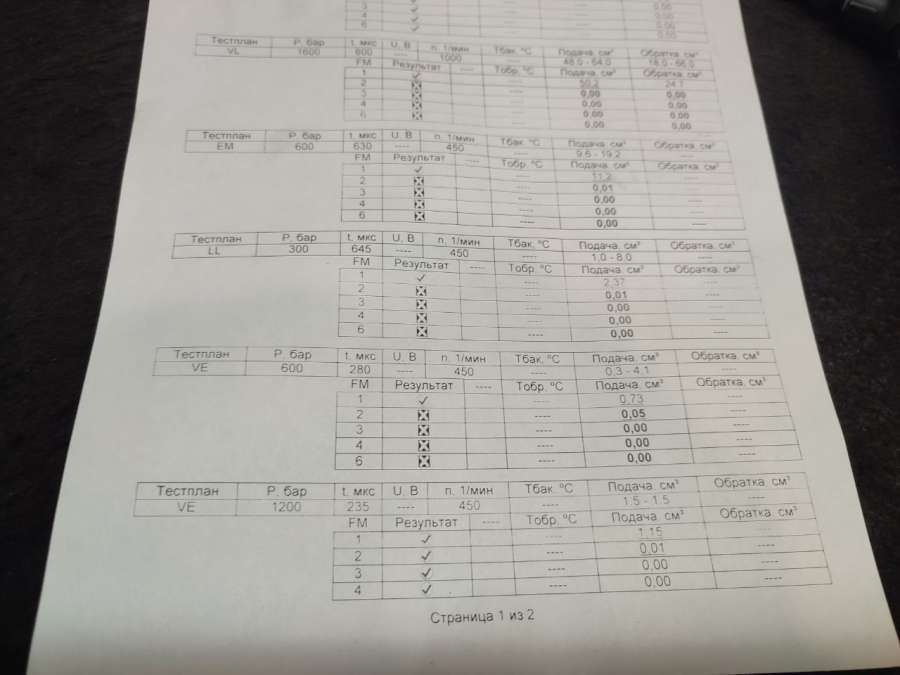 3 ✓ 0,00
4 ✓ 0,00
6 ✓ 0,00
0,00
Тестплан Р. бар t. мкс U, В n. 1/мин Тбак. ºС Подача. см³ Обратка. см³
VL 1600 600 ---- 1000 ---- 48.0 - 64.0 18.0 - 56.0
FM Результат ---- Тобр. ºС Подача. см³ Обратка. см³
1 ✓ ---- 50,2 24.7
2 ☒ ---- 0,00 0,00
3 ☒ ---- 0,00 0,00
4 ☒ ---- 0,00 0,00
6 ☒ ---- 0,00 0,00
Тестплан Р. бар t. мкс U, В n. 1/мин Тбак. ºС Подача. см³ Обратка. см³
EM 600 630 ---- 450 ---- 9.6 - 19.2 ----
FM Результат ---- Тобр. ºС Подача. см³ Обратка. см³
1 ✓ ---- 11,2 ----
2 ☒ ---- 0,01 ----
3 ☒ ---- 0,00 ----
4 ☒ ---- 0,00 ----
6 ☒ ---- 0,00 ----
Тестплан Р. бар t. мкс U, В n. 1/мин Тбак. ºС Подача. см³ Обратка. см³
LL 300 645 ---- 450 ---- 1.0 - 8.0 ----
FM Результат ---- Тобр. ºС Подача. см³ Обратка. см³
1 ✓ ---- 2,37 ----
2 ☒ ---- 0,01 ----
3 ☒ ---- 0,00 ----
4 ☒ ---- 0,00 ----
6 ☒ ---- 0,00 ----
Тестплан Р. бар t. мкс U, В n. 1/мин Тбак. ºС Подача. см³ Обратка. см³
VE 600 280 ---- 450 ---- 0.3 - 4.1 ----
FM Результат ---- Тобр. ºС Подача. см³ Обратка. см³
1 ✓ ---- 0,73 ----
2 ☒ ---- 0,05 ----
3 ☒ ---- 0,00 ----
4 ☒ ---- 0,00 ----
6 ☒ ---- 0,00 ----
Тестплан Р. бар t. мкс U, В n. 1/мин Тбак. ºС Подача. см³ Обратка. см³
VE 1200 235 ---- 450 ---- 1.5 - 1.5 ----
FM Результат ---- Тобр. ºС Подача. см³ Обратка. см³
1 ✓ ---- 1,15 ----
2 ✓ ---- 0,01 ----
3 ✓ ---- 0,00 ----
4 ✓ ---- 0,00 ----
Страница 1 из 2